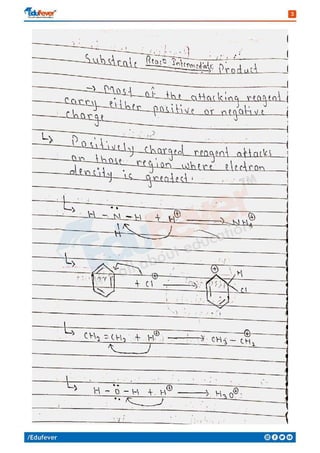 Edufever
3
Substrate React Intermediate Product
→ Most of the attacking reagent
carry either positive or negative
charge
↳ Positively charged reagent attacks
on those region where electron
density is greatest.
↳ H - N̈ - H + H⊕ → NH₄⊕
H
↳ + Cl⊕ → ⊕ H
Cl
↳ CH₂ = CH₂ + H⊕ → CH₃ - CH₂⊕
↳ H - Ö - H + H⊕ → H₃O⊕
Edufever™
about education
/Edufever